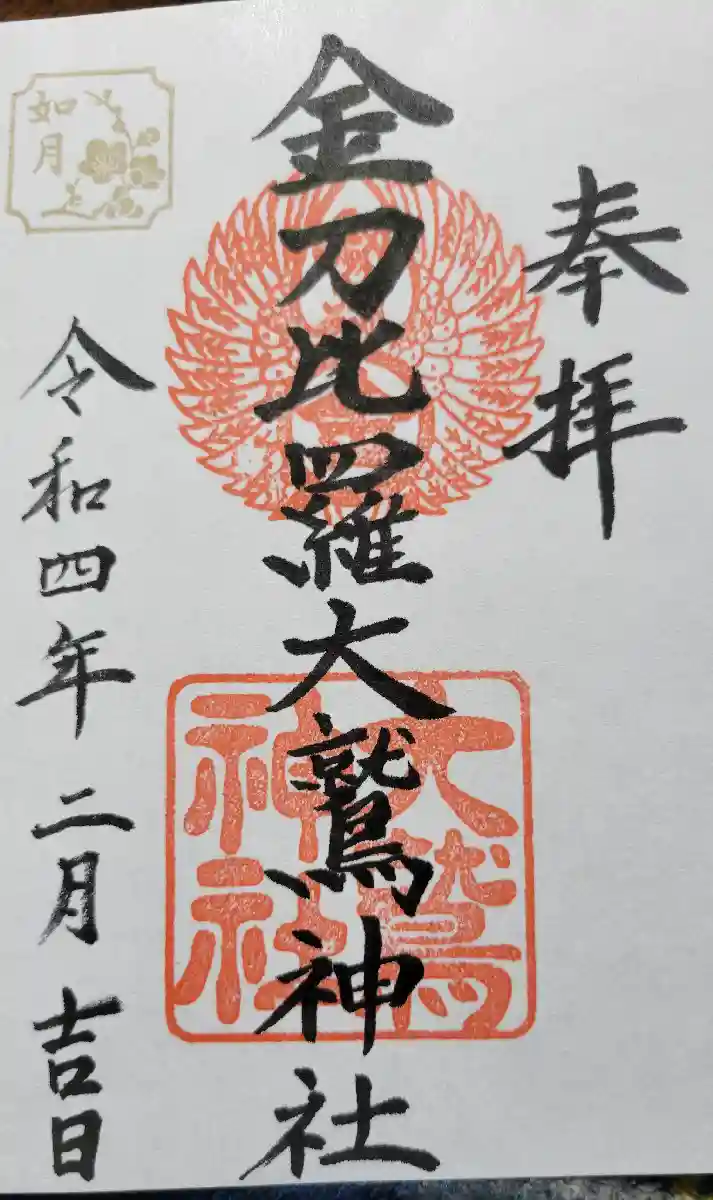 奉拝
金刀比羅大鷲神社
大鷲
神社
如月
令和四年二月吉日